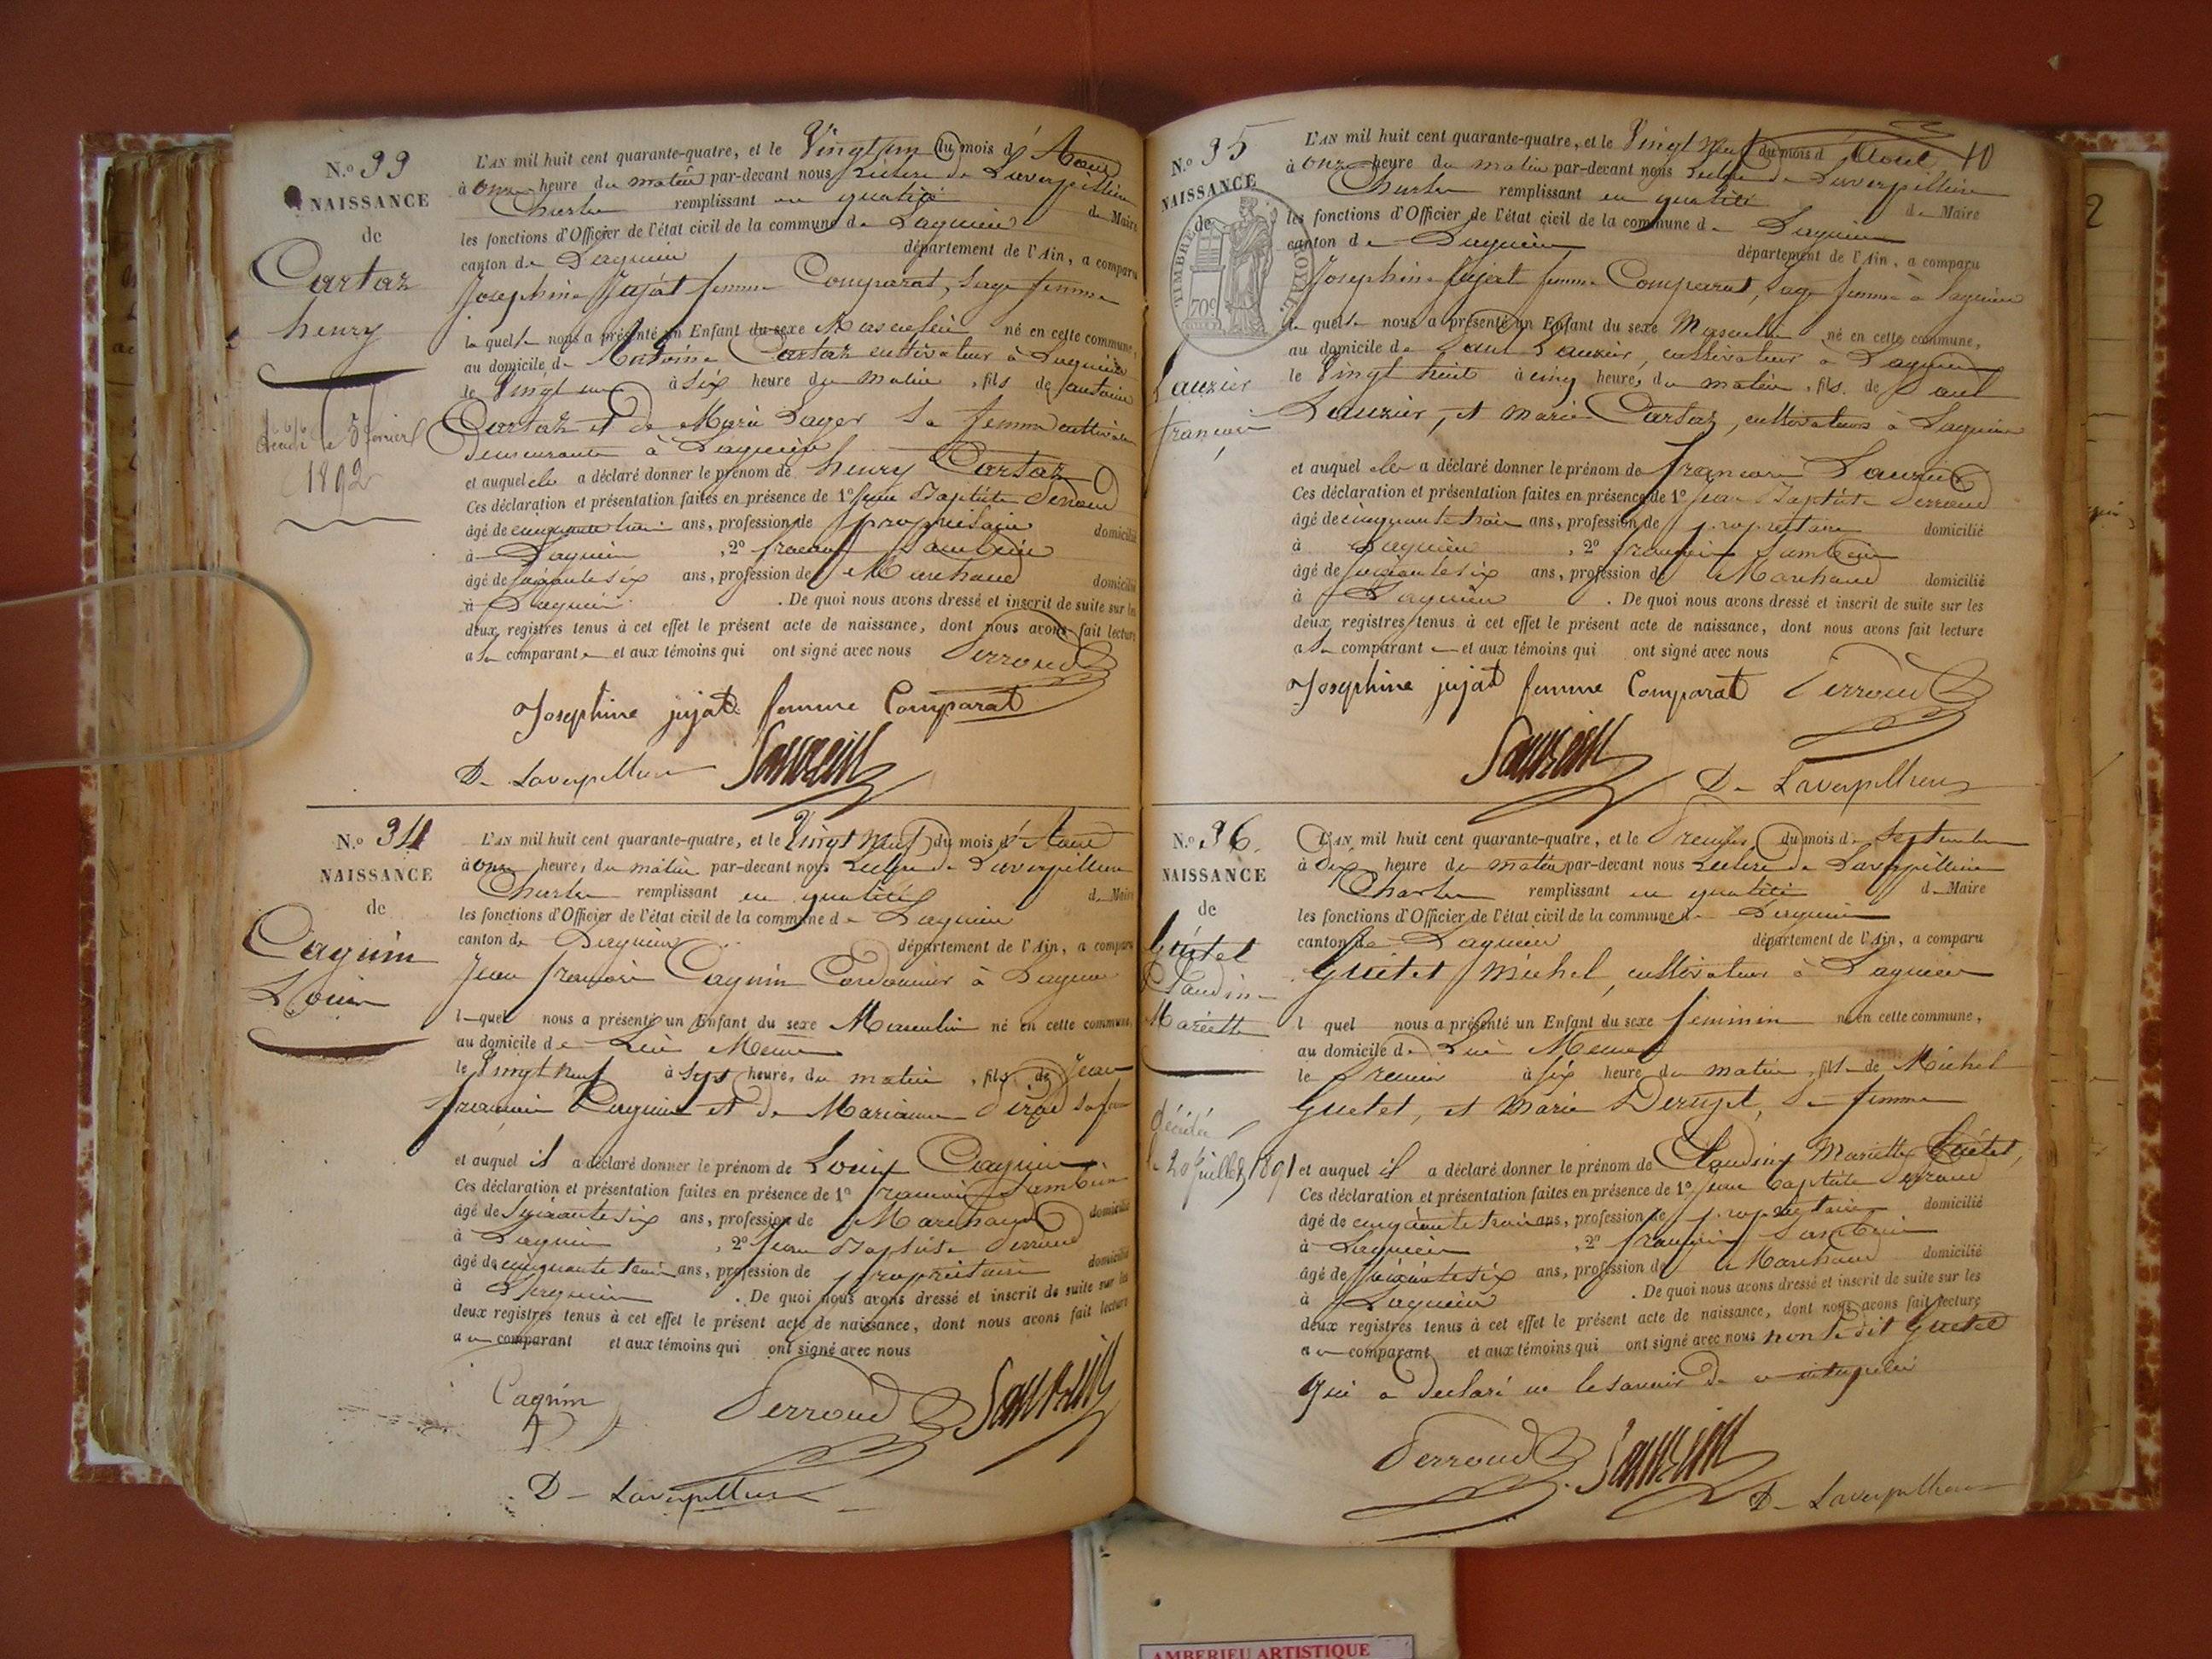 N.o 33
NAISSANCE
de
Cartaz
henry
décédé le 5 février
1892
L'AN mil huit cent quarante-quatre, et le Vingt un du mois d'Aout
à onze heure du matin par-devant nous Leclerc de Laverpillière
Charles remplissant en qualité de Maire
les fonctions d'Officier de l'état civil de la commune de Lagnieu
canton de Lagnieu département de l'Ain, a comparu
Josephine Jujat femme Comparat, Sage femme
la quelle nous a présenté un Enfant du sexe Masculin né en cette commune,
au domicile de Antoine Cartaz cultivateur à Lagnieu
le Vingt un à six heure du matin, fils de antoine
Cartaz et de Marie Sa femme cultivateurs
demeurants à Lagnieu
et auquel elle a déclaré donner le prénom de henry Cartaz
Ces déclaration et présentation faites en présence de 1o Jean Baptiste Perroud
âgé de cinquante trois ans, profession de propriétaire domicilié
à Lagnieu, 2o francois
âgé de soixante six ans, profession de Marchand domicilié
à Lagnieu. De quoi nous avons dressé et inscrit de suite sur les
deux registres tenus à cet effet le présent acte de naissance, dont nous avons fait lecture
a la comparante et aux témoins qui ont signé avec nous Perroud
Josephine jujat femme Comparat
De Laverpilliere
N.o 34
NAISSANCE
de
Cagnin
Louis
L'AN mil huit cent quarante-quatre, et le Vingt Neuf du mois d'Aout
à onze heure, du matin par-devant nous Leclerc de Laverpilliere
Charles remplissant en qualité de Maire
les fonctions d'Officier de l'état civil de la commune de Lagnieu
canton de Lagnieu département de l'Ain, a comparu
Jean francois Cagnin Cordonnier à Lagnieu
lequel nous a présenté un Enfant du sexe Masculin né en cette commune,
au domicile de Lui Meme
le Vingt neuf à sept heure, du matin, fils de Jean
francois Cagnin et de Marianne sa femme
et auquel il a déclaré donner le prénom de Louis Cagnin
Ces déclaration et présentation faites en présence de 1o francois
âgé de soixante six ans, profession de Marchand domicilié
à Lagnieu, 2o Jean Baptiste Perroud
âgé de cinquante trois ans, profession de propriétaire domicilié
à Lagnieu. De quoi nous avons dressé et inscrit de suite sur les
deux registres tenus à cet effet le présent acte de naissance, dont nous avons fait lecture
au comparant et aux témoins qui ont signé avec nous
Cagnin Perroud
De Laverpilliere
N.o 35
NAISSANCE
de
TIMBRE ROYAL
70c
Lauzier
francois
L'AN mil huit cent quarante-quatre, et le Vingt Neuf du mois d'Aout 10
à onze heure du matin par-devant nous Leclerc de Laverpilliere
Charles remplissant en qualité de Maire
les fonctions d'Officier de l'état civil de la commune de Lagnieu
canton de Lagnieu département de l'Ain, a comparu
Josephine Jujat femme Comparat, Sage femme à Lagnieu
la quelle nous a présenté un Enfant du sexe Masculin né en cette commune,
au domicile de Paul Lauzier, cultivateur à Lagnieu
le Vingt huit à cinq heure, du matin, fils de Paul
Lauzier, et marie Cartaz, cultivateurs à Lagnieu
et auquel elle a déclaré donner le prénom de francois Lauzier
Ces déclaration et présentation faites en présence de 1o Jean Baptiste Perroud
âgé de cinquante trois ans, profession de propriétaire domicilié
à Lagnieu, 2o francois
âgé de soixante six ans, profession de Marchand domicilié
à Lagnieu. De quoi nous avons dressé et inscrit de suite sur les
deux registres tenus à cet effet le présent acte de naissance, dont nous avons fait lecture
a la comparante et aux témoins qui ont signé avec nous
Josephine jujat femme Comparat Perroud
De Laverpilliere
N.o 36.
NAISSANCE
de
Guétet
Claudine
Mariette
décédée
le 20 juillet 1891
L'AN mil huit cent quarante-quatre, et le Premier du mois de Septembre
à dix heure du matin par-devant nous Leclerc de Laverpilliere
Charles remplissant en qualité de Maire
les fonctions d'Officier de l'état civil de la commune de Lagnieu
canton de Lagnieu département de l'Ain, a comparu
Guétet Michel, cultivateur à Lagnieu
lequel nous a présenté un Enfant du sexe féminin né en cette commune,
au domicile de Lui Meme
le Premier à six heure du matin, fille de Michel
Guetet, et Marie Derupt, Sa femme
et auquel il a déclaré donner le prénom de Claudine Mariette Guétet,
Ces déclaration et présentation faites en présence de 1o Jean baptiste Perroud
âgé de cinquante trois ans, profession de propriétaire domicilié
à Lagnieu, 2o francois
âgé de soixante six ans, profession de Marchand domicilié
à Lagnieu. De quoi nous avons dressé et inscrit de suite sur les
deux registres tenus à cet effet le présent acte de naissance, dont nous avons fait lecture
au comparant et aux témoins qui ont signé avec nous non le dit Guetet
qui a declaré ne le savoir de ce
Perroud
De Laverpilliere
AMBERIEU ARTISTIQUE